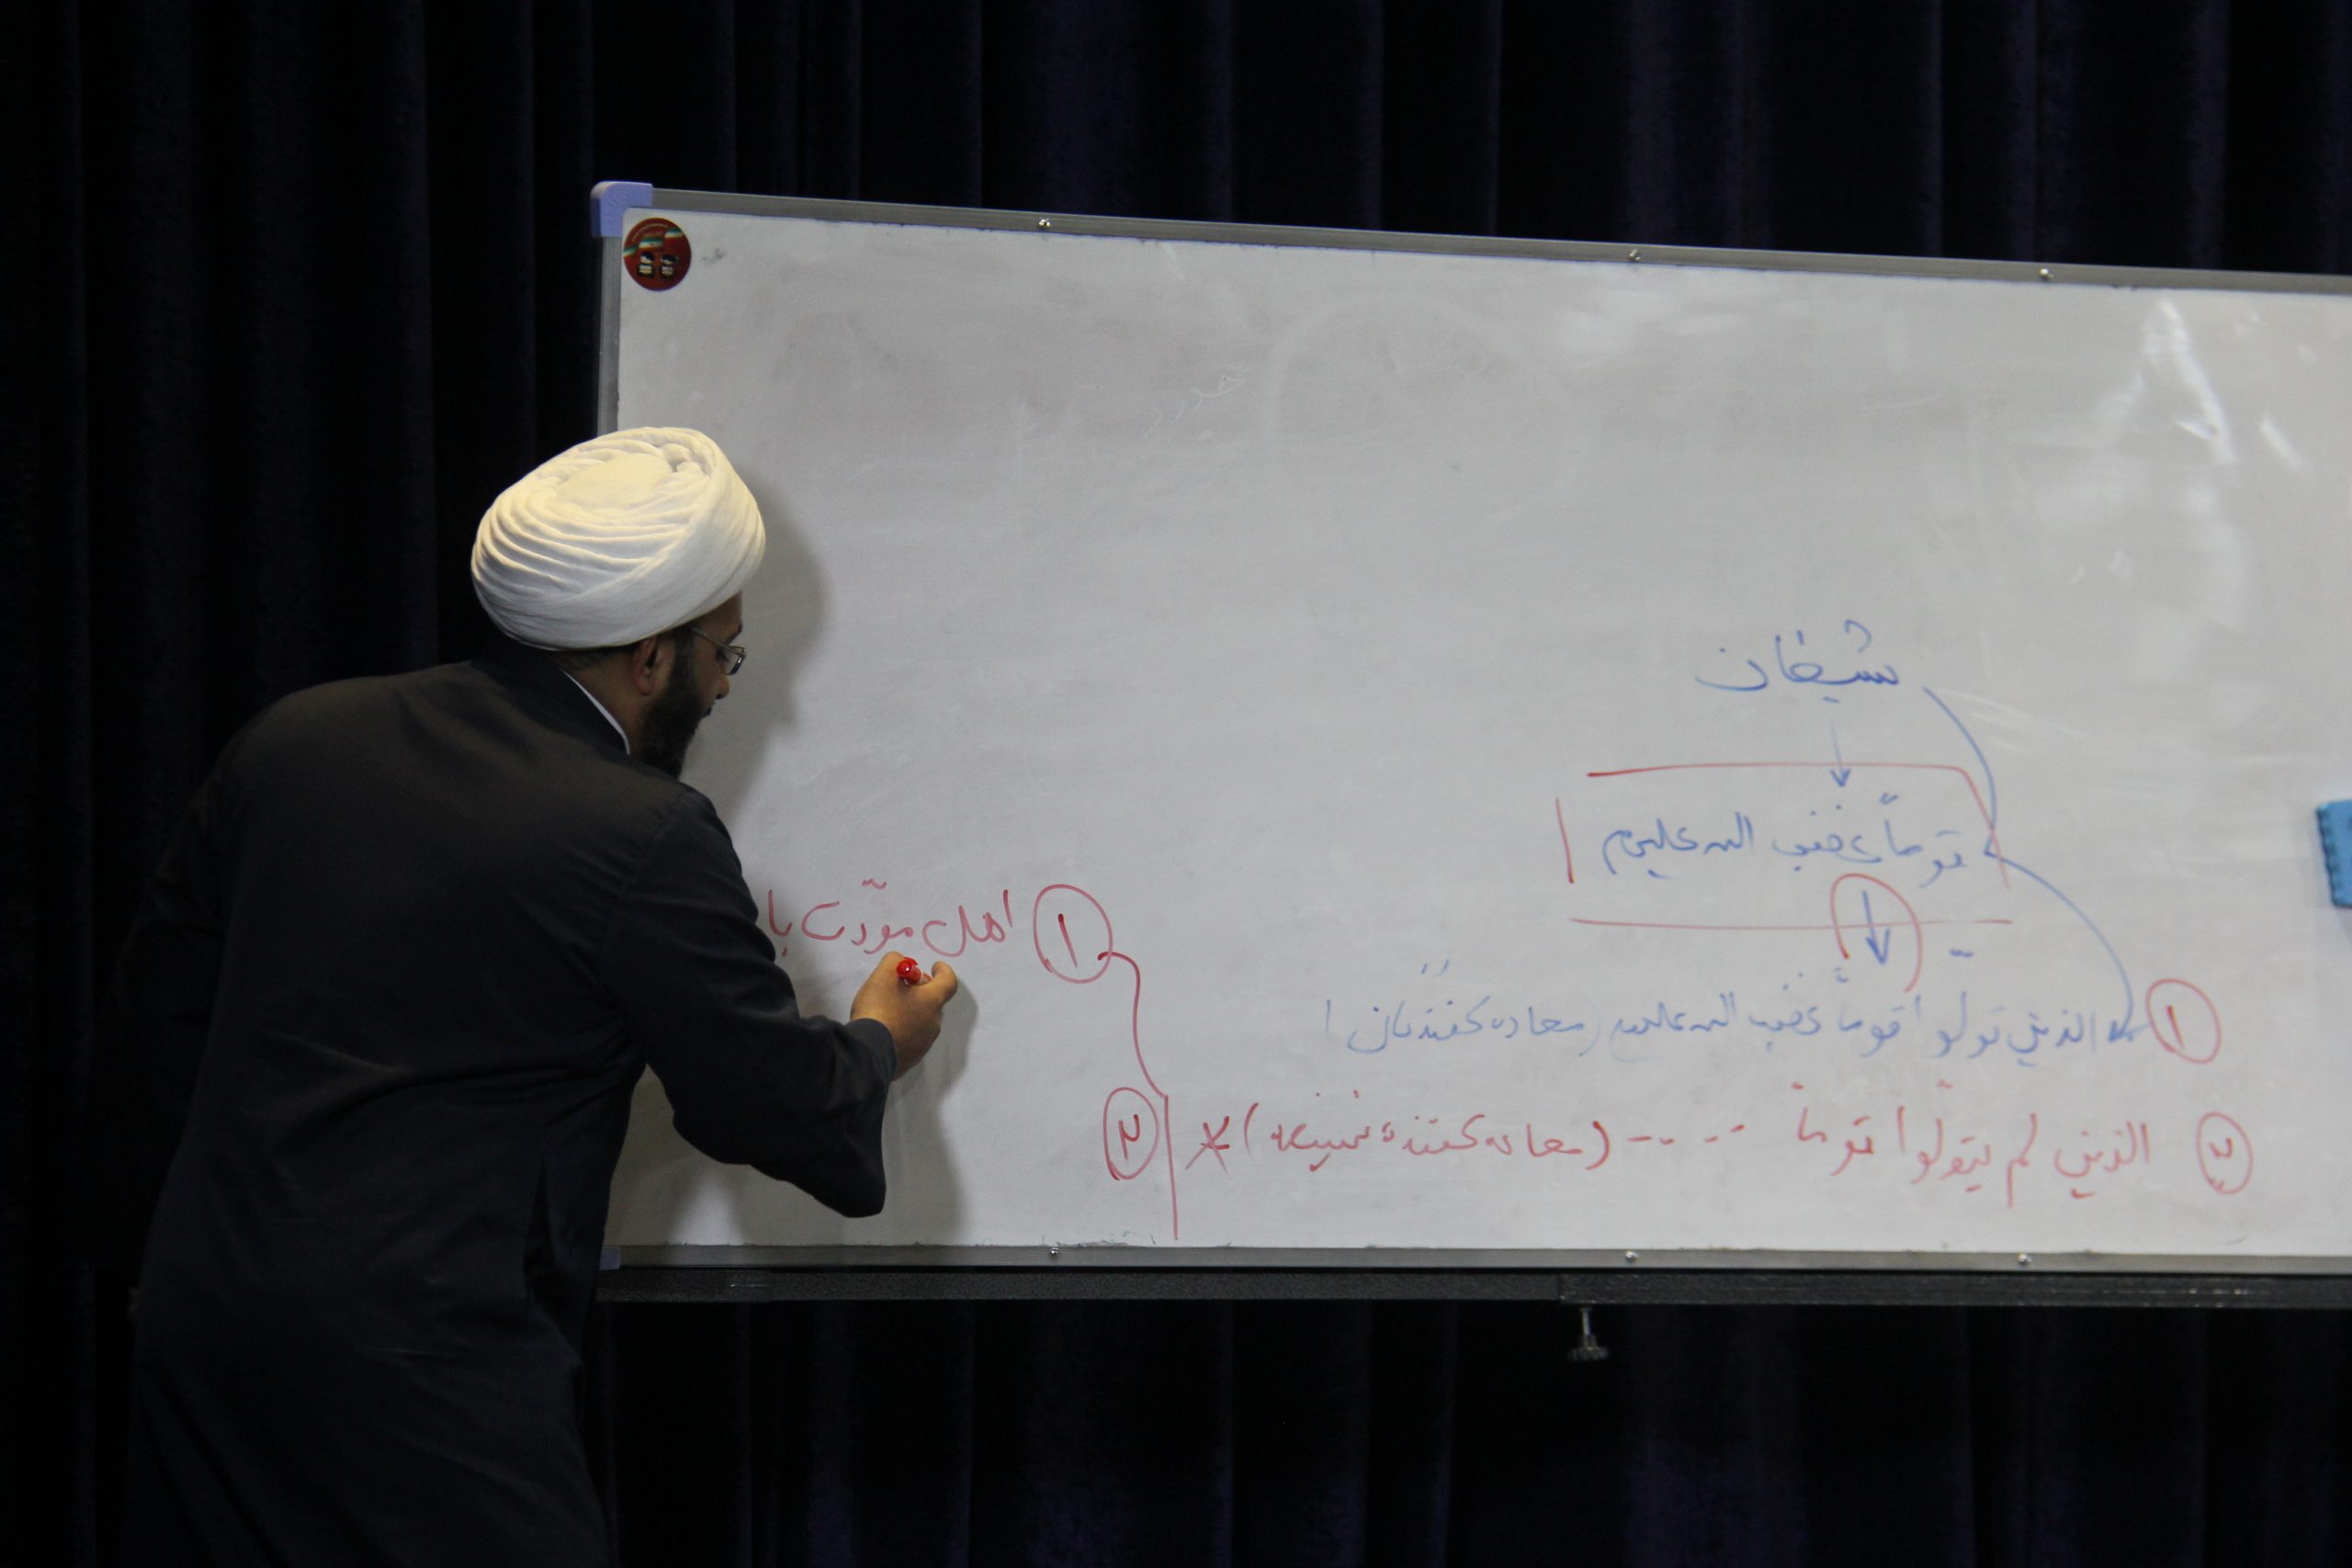 شیطان
قوماً غضب الله علیهم
۱ الذین تولّوا قوماً غضب الله علیهم (معادله کنندگان)
۲ الذین لم یتولّوا قوماً ---- (معادله کننده نیستند) *
۱ اهل مودّت با
۲